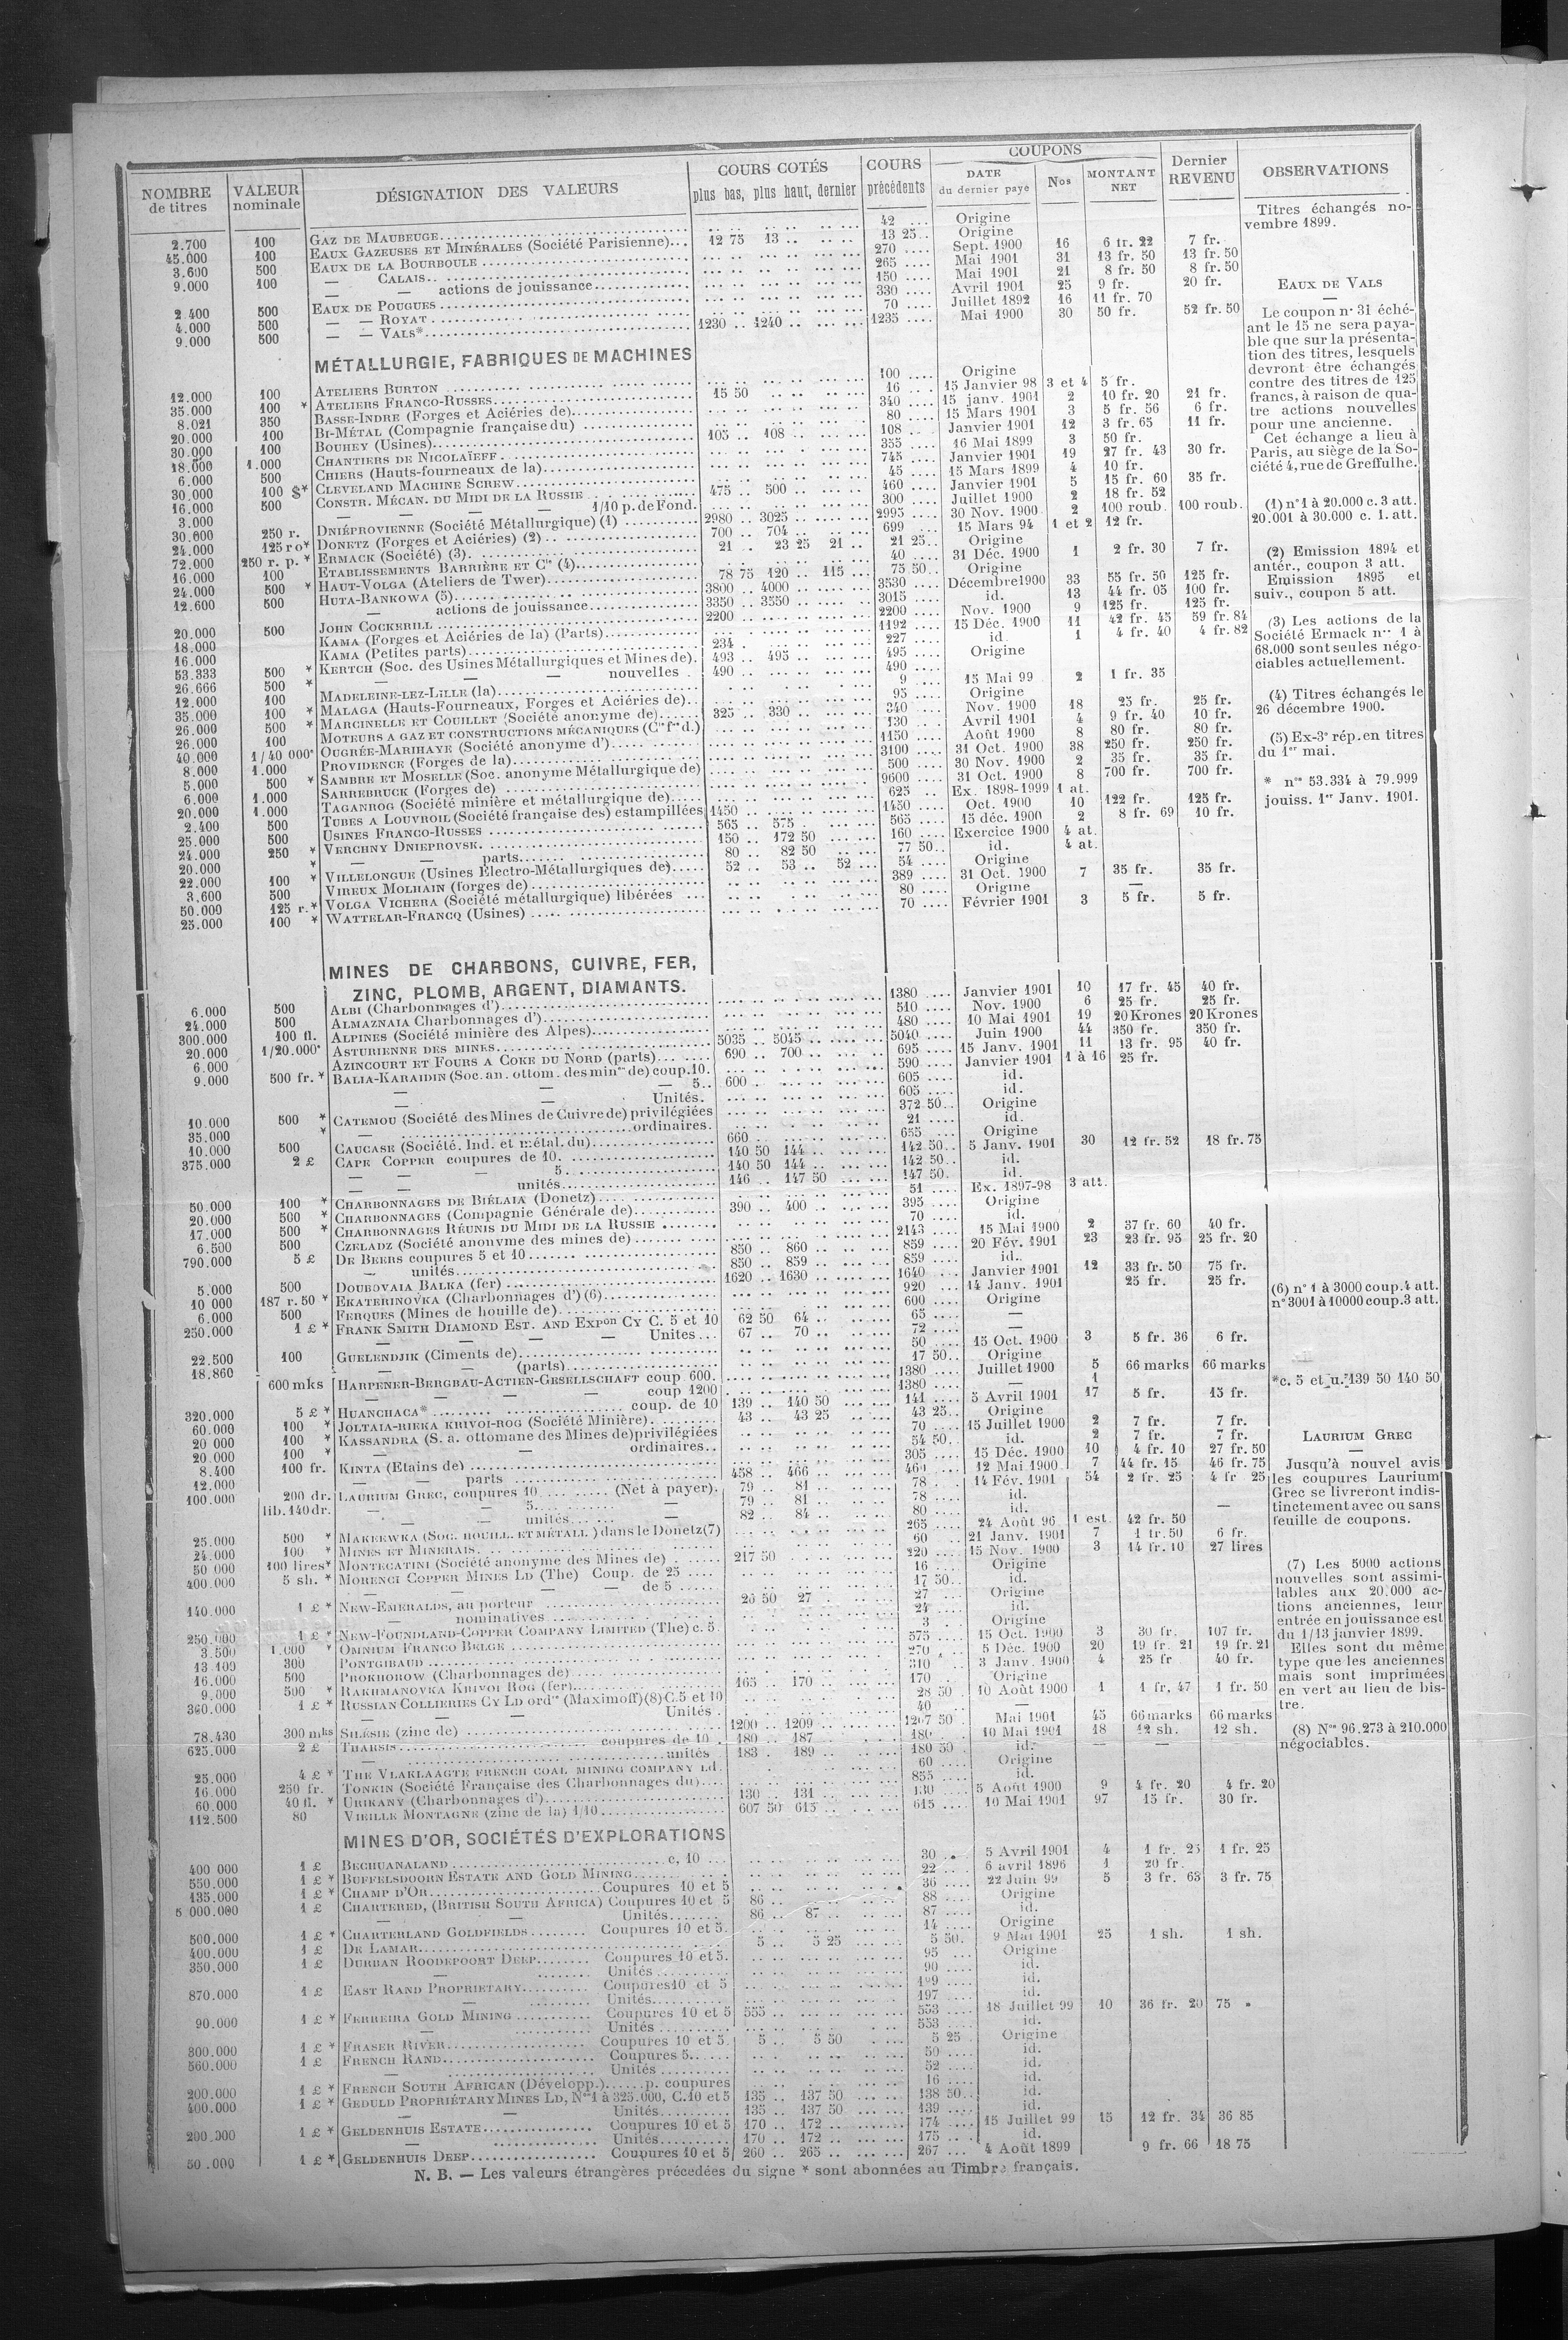 NOMBRE de titres | VALEUR nominale | DÉSIGNATION DES VALEURS | COURS COTÉS plus bas, plus haut, dernier | COURS précédents | COUPONS DATE du dernier payé | Nos | MONTANT NET | Dernier REVENU | OBSERVATIONS
2.700 100 GAZ DE MAUBEUGE 42 Origine
45.000 100 EAUX GAZEUSES ET MINÉRALES (Société Parisienne) 12 75 13 13 25 Origine
3.600 500 EAUX DE LA BOURBOULE 270 Sept. 1900 16 6 fr. 22 7 fr.
9.000 100 — CALAIS 265 Mai 1901 31 13 fr. 50 13 fr. 50
— — actions de jouissance 150 Mai 1901 21 8 fr. 50 8 fr. 50
2.400 500 EAUX DE POUGUES 330 Avril 1901 25 9 fr. 20 fr.
4.000 500 — — ROYAT 70 Juillet 1892 16 11 fr. 70
9.000 500 — — VALS* 1230 1240 1235 Mai 1900 30 50 fr. 52 fr. 50
MÉTALLURGIE, FABRIQUES DE MACHINES
12.000 100 ATELIERS BURTON 100 Origine
35.000 100 * ATELIERS FRANCO-RUSSES 15 50 16 15 Janvier 98 3 et 4 5 fr.
8.021 350 BASSE-INDRE (Forges et Aciéries de) 340 15 janv. 1901 2 10 fr. 20 21 fr.
20.000 100 BI-MÉTAL (Compagnie française du) 80 15 Mars 1901 3 5 fr. 56 6 fr.
30.000 100 BOUHEY (Usines) 105 108 108 Janvier 1901 12 3 fr. 65 11 fr.
18.000 1.000 CHANTIERS DE NICOLAÏEFF 355 16 Mai 1899 3 50 fr.
6.000 500 CHIERS (Hauts-fourneaux de la) 745 Janvier 1901 19 27 fr. 43 30 fr.
30.000 100 $* CLEVELAND MACHINE SCREW 45 15 Mars 1899 4 10 fr.
16.000 500 CONSTR. MÉCAN. DU MIDI DE LA RUSSIE 475 500 460 Janvier 1901 5 15 fr. 60 35 fr.
3.000 — — — — 1/10 p. de Fond. 300 Juillet 1900 2 18 fr. 52
30.000 250 r. DNIÉPROVIENNE (Société Métallurgique) (1) 2980 3025 2995 30 Nov. 1900 2 100 roub. 100 roub.
24.000 125 ro* DONETZ (Forges et Aciéries) (2) 700 704 699 15 Mars 94 1 et 2 12 fr.
72.000 250 r. p. * ERMACK (Société) (3) 21 23 25 21 21 25 Origine
16.000 100 ETABLISSEMENTS BARRIÈRE ET Cie (4) 40 31 Déc. 1900 1 2 fr. 30 7 fr.
24.000 500 * HAUT-VOLGA (Ateliers de Twer) 78 75 120 115 75 50 Origine
12.600 500 HUTA-BANKOWA (5) 3800 4000 3530 Décembre 1900 33 55 fr. 50 125 fr.
— actions de jouissance 3350 3550 3015 id. 13 44 fr. 05 100 fr.
20.000 500 JOHN COCKERILL 2200 2200 Nov. 1900 9 125 fr. 125 fr.
18.000 KAMA (Forges et Aciéries de la) (Parts) 1192 15 Déc. 1900 11 42 fr. 45 59 fr. 84
16.000 KAMA (Petites parts) 234 227 id 1 4 fr. 40 4 fr. 82
53.333 500 * KERTCH (Soc. des Usines Métallurgiques et Mines de) 493 495 495 Origine
26.666 500 * — — — nouvelles 490 490
12.000 100 MADELEINE-LEZ-LILLE (la) 9 15 Mai 99 2 1 fr. 35
35.000 100 * MALAGA (Hauts-Fourneaux, Forges et Aciéries de) 95 Origine
26.000 500 * MARCINELLE ET COUILLET (Société anonyme de) 325 330 340 Nov. 1900 18 25 fr. 25 fr.
26.000 100 MOTEURS A GAZ ET CONSTRUCTIONS MÉCANIQUES (Cie fse d.) 130 Avril 1901 4 9 fr. 40 10 fr.
40.000 1/40 000e OUGRÉE-MARIHAYE (Société anonyme d') 1150 Août 1900 8 80 fr. 80 fr.
8.000 1.000 PROVIDENCE (Forges de la) 3100 31 Oct. 1900 38 250 fr. 250 fr.
5.000 500 * SAMBRE ET MOSELLE (Soc. anonyme Métallurgique de) 500 30 Nov. 1900 2 35 fr. 35 fr.
6.000 1.000 SARREBRUCK (Forges de) 9600 31 Oct. 1900 8 700 fr. 700 fr.
20.000 1.000 TAGANROG (Société minière et métallurgique de) 625 Ex. 1898-1999 1 at.
2.400 500 TUBES A LOUVROIL (Société française des) estampillées 1450 1450 Oct. 1900 10 122 fr. 125 fr.
25.000 500 USINES FRANCO-RUSSES 565 575 565 15 déc. 1900 2 8 fr. 69 10 fr.
24.000 250 * VERCHNY DNIEPROVSK 150 172 50 160 Exercice 1900 4 at.
20.000 * — — parts 80 82 50 77 50 id. 4 at.
22.000 100 * VILLELONGUE (Usines Électro-Métallurgiques de) 52 53 52 54 Origine
3.600 500 VIREUX MOLHAIN (forges de) 389 31 Oct. 1900 7 35 fr. 35 fr.
50.000 125 r.* VOLGA VICHERA (Société métallurgique) libérées 80 Origine —
25.000 100 * WATTELAR-FRANCQ (Usines) 70 Février 1901 3 5 fr. 5 fr.
MINES DE CHARBONS, CUIVRE, FER,
ZINC, PLOMB, ARGENT, DIAMANTS.
6.000 500 ALBI (Charbonnages d') 1380 Janvier 1901 10 17 fr. 45 40 fr.
24.000 500 ALMAZNAIA Charbonnages d') 510 Nov. 1900 6 25 fr. 25 fr.
300.000 100 fl. ALPINES (Société minière des Alpes) 480 10 Mai 1901 19 20 Krones 20 Krones
20.000 1/20.000e ASTURIENNE DES MINES 5035 5045 5040 Juin 1900 44 350 fr. 350 fr.
6.000 AZINCOURT ET FOURS A COKE DU NORD (parts) 690 700 695 15 Janv. 1901 11 13 fr. 95 40 fr.
9.000 500 fr. * BALIA-KARAIDIN (Soc. an. ottom. des mines de) coup. 10. 590 Janvier 1901 1 à 16 25 fr.
— — — 5. 600 605 id.
— — Unités. 605 id.
10.000 500 * CATEMOU (Société des Mines de Cuivre de) privilégiées 372 50 Origine
35.000 * — ordinaires. 21 id.
10.000 500 CAUCASE (Société. Ind. et métal. du) 660 655 Origine
375.000 2 £ CAPE COPPER coupures de 10. 140 50 144 142 50 5 Janv. 1901 30 12 fr. 52 18 fr. 75
— — — 5. 140 50 144 142 50 id.
— — unités 146 147 50 147 50 id.
50.000 100 * CHARBONNAGES DE BIÉLAIA (Donetz) 51 Ex. 1897-98 3 att.
20.000 500 * CHARBONNAGES (Compagnie Générale de) 390 400 395 Origine
17.000 500 * CHARBONNAGES RÉUNIS DU MIDI DE LA RUSSIE 70 id.
6.500 500 CZELADZ (Société anonyme des mines de) 2143 15 Mai 1900 2 37 fr. 60 40 fr.
790.000 5 £ DE BEERS coupures 5 et 10 850 860 859 20 Fév. 1901 23 23 fr. 95 25 fr. 20
— unités 850 859 859 id.
5.000 500 DOUBOVAIA BALKA (fer) 1620 1630 1640 Janvier 1901 12 33 fr. 50 75 fr.
10 000 187 r. 50 * EKATERINOVKA (Charbonnages d') (6) 920 14 Janv. 1901 25 fr. 25 fr.
6.000 500 FERQUES (Mines de houille de) 600 Origine
250.000 1 £ * FRANK SMITH DIAMOND EST. AND EXPon CY C. 5 et 10 62 50 64 65 —
— — — — Unites 67 70 72 —
22.500 100 GUELENDJIK (Ciments de) 50 15 Oct. 1900 3 5 fr. 36 6 fr.
18.860 — — (parts) 17 50 Origine
600 mks HARPENER-BERGBAU-ACTIEN-GESELLSCHAFT coup 600. 1380 Juillet 1900 5 66 marks 66 marks
— — — — coup 1200 1380 — 1
320.000 5 £ * HUANCHACA* coup. de 10 139 140 50 141 5 Avril 1901 17 5 fr. 15 fr.
60.000 100 * JOLTAIA-RIEKA KRIVOI-ROG (Société Minière) 43 43 25 43 25 Origine
20 000 100 * KASSANDRA (S. a. ottomane des Mines de) privilégiées 70 15 Juillet 1900 2 7 fr. 7 fr.
20.000 100 * — — — ordinaires 54 50 id. 2 7 fr. 7 fr.
8.400 100 fr. KINTA (Etains de) 305 15 Déc. 1900 10 4 fr. 10 27 fr. 50
12.000 — — parts 458 466 460 12 Mai 1900 7 44 fr. 15 46 fr. 75
100.000 200 dr. LAURIUM GREC, coupures 10 (Net à payer). 79 81 78 14 Fév. 1901 54 2 fr. 25 4 fr 25
lib. 140 dr. — — 5. — 79 81 78 id.
— — unités — 82 84 80 id. —
25.000 500 * MAKEEWKA (SOC. HOUILL. ET MÉTALL.) dans le Donetz (7) 265 24 Août 96 1 est. 42 fr. 50
24.000 100 * MINES ET MINERAIS 60 21 Janv. 1901 7 1 fr. 50 6 fr.
50 000 100 lires* MONTECATINI (Société anonyme des Mines de) 217 50 220 15 Nov. 1900 3 14 fr. 10 27 lires
400.000 5 sh. * MORENCI COPPER MINES LD (The) Coup. de 25 16 Origine
— — — de 5 17 50 id.
140.000 1 £ * NEW-EMERALDS, au porteur 26 50 27 27 Origine
— nominatives 24 id.
250.000 1 £ * NEW-FOUNDLAND-COPPER COMPANY LIMITED (The) c. 5 3 Origine
3.500 1.000 * OMNIUM FRANCO BELGE 575 15 Oct. 1900 3 30 fr. 107 fr.
13 109 300 PONTGIBAUD 270 5 Déc. 1900 20 19 fr. 21 19 fr. 21
16.000 500 PROKHOROW (Charbonnages de) 310 3 Janv. 1900 4 25 fr 40 fr.
9.000 500 * RAKHMANOVKA KRIVOI ROG (fer) 165 170 170 Origine
360.000 1 £ * RUSSIAN COLLIERIES CY LD ordres (Maximoff) (8) C. 5 et 10 28 50 10 Août 1900 1 1 fr, 47 1 fr. 50
— — — — Unités 40 —
78.430 300 mks SILÉSIE (zinc de) 1200 1209 1207 50 Mai 1901 45 66 marks 66 marks
625.000 2 £ THARSIS coupures de 10 180 187 180 10 Mai 1901 18 12 sh. 12 sh.
— unités 183 189 180 50 id. — —
25.000 4 £ * THE VLAKLAAGTE FRENCH COAL MINING COMPANY Ld. 60 Origine
16.000 250 fr. TONKIN (Société Française des Charbonnages du) 855 id.
60.000 40 fl. * URIKANY (Charbonnages d') 130 131 130 5 Août 1900 9 4 fr. 20 4 fr. 20
112.500 80 VIEILLE MONTAGNE (zinc de la) 1/10 607 50 615 615 10 Mai 1901 97 15 fr. 30 fr.
MINES D'OR, SOCIÉTÉS D'EXPLORATIONS
400 000 1 £ BECHUANALAND c, 10 30 5 Avril 1901 4 1 fr. 25 1 fr. 25
550.000 1 £ * BUFFELSDOORN ESTATE AND GOLD MINING 22 6 avril 1896 1 20 fr.
135.000 1 £ * CHAMP D'OR Coupures 10 et 5 36 22 Juin 99 5 3 fr. 63 3 fr. 75
5 000.000 1 £ CHARTERED, (BRITISH SOUTH AFRICA) Coupures 10 et 5 86 88 Origine
— — Unités 86 87 87 id.
500.000 1 £ * CHARTERLAND GOLDFIELDS Coupures 10 et 5. 14 Origine
400.000 1 £ DE LAMAR 5 5 25 5 50. 9 Mai 1901 25 1 sh. 1 sh.
350.000 1 £ DURBAN ROODEPOORT DEEP Coupures 10 et 5. 95 Origine
— Unités 90 id.
870.000 1 £ EAST RAND PROPRIETARY Coupures 10 et 5 199 id.
— Unités 197 id.
90.000 1 £ * FERREIRA GOLD MINING Coupures 10 et 5 555 553 18 Juillet 99 10 36 fr. 20 75 »
— Unités 553 id.
300.000 1 £ * FRASER RIVER Coupures 10 et 5. 5 5 50 5 25 Origine
560.000 1 £ FRENCH RAND Coupures 5 50 id.
— Unités 52 id.
200.000 1 £ * FRENCH SOUTH AFRICAN (Développ.) p. coupures 16 id.
400.000 1 £ * GEDULD PROPRIÉTARY MINES LD, Nos 1 à 325.000, C. 10 et 5 135 137 50 138 50 id.
— — Unités 135 137 50 139 id.
200.000 1 £ * GELDENHUIS ESTATE Coupures 10 et 5 170 172 174 15 Juillet 99 15 12 fr. 34 36 85
— Unités 170 172 175 id.
50.000 1 £ * GELDENHUIS DEEP Coupures 10 et 5 260 265 267 4 Août 1899 9 fr. 66 18 75
Titres échangés no-
vembre 1899.
EAUX DE VALS
Le coupon n° 31 éché-
ant le 15 ne sera paya-
ble que sur la présenta-
tion des titres, lesquels
devront être échangés
contre des titres de 125
francs, à raison de qua-
tre actions nouvelles
pour une ancienne.
Cet échange a lieu à
Paris, au siège de la So-
ciété 4, rue de Greffulhe.
(1) n° 1 à 20.000 c. 3 att.
20.001 à 30.000 c. 1. att.
(2) Emission 1894 et
antér., coupon 3 att.
Emission 1895 et
suiv., coupon 5 att.
(3) Les actions de la
Société Ermack nos 1 à
68.000 sont seules négo-
ciables actuellement.
(4) Titres échangés le
26 décembre 1900.
(5) Ex-3e rép. en titres
du 1er mai.
* nos 53.334 à 79.999
jouiss. 1er Janv. 1901.
(6) n° 1 à 3000 coup. 4 att.
n° 3001 à 10000 coup. 3 att.
*c. 5 et u. 139 50 140 50
LAURIUM GREC
Jusqu'à nouvel avis
les coupures Laurium
Grec se livreront indis-
tinctement avec ou sans
feuille de coupons.
(7) Les 5000 actions
nouvelles sont assimi-
lables aux 20.000 ac-
tions anciennes, leur
entrée en jouissance est
du 1/13 janvier 1899.
Elles sont du même
type que les anciennes
mais sont imprimées
en vert au lieu de bis-
tre.
(8) Nos 96.273 à 210.000
négociables.
N. B. — Les valeurs étrangères précedées du signe * sont abonnées au Timbre français.